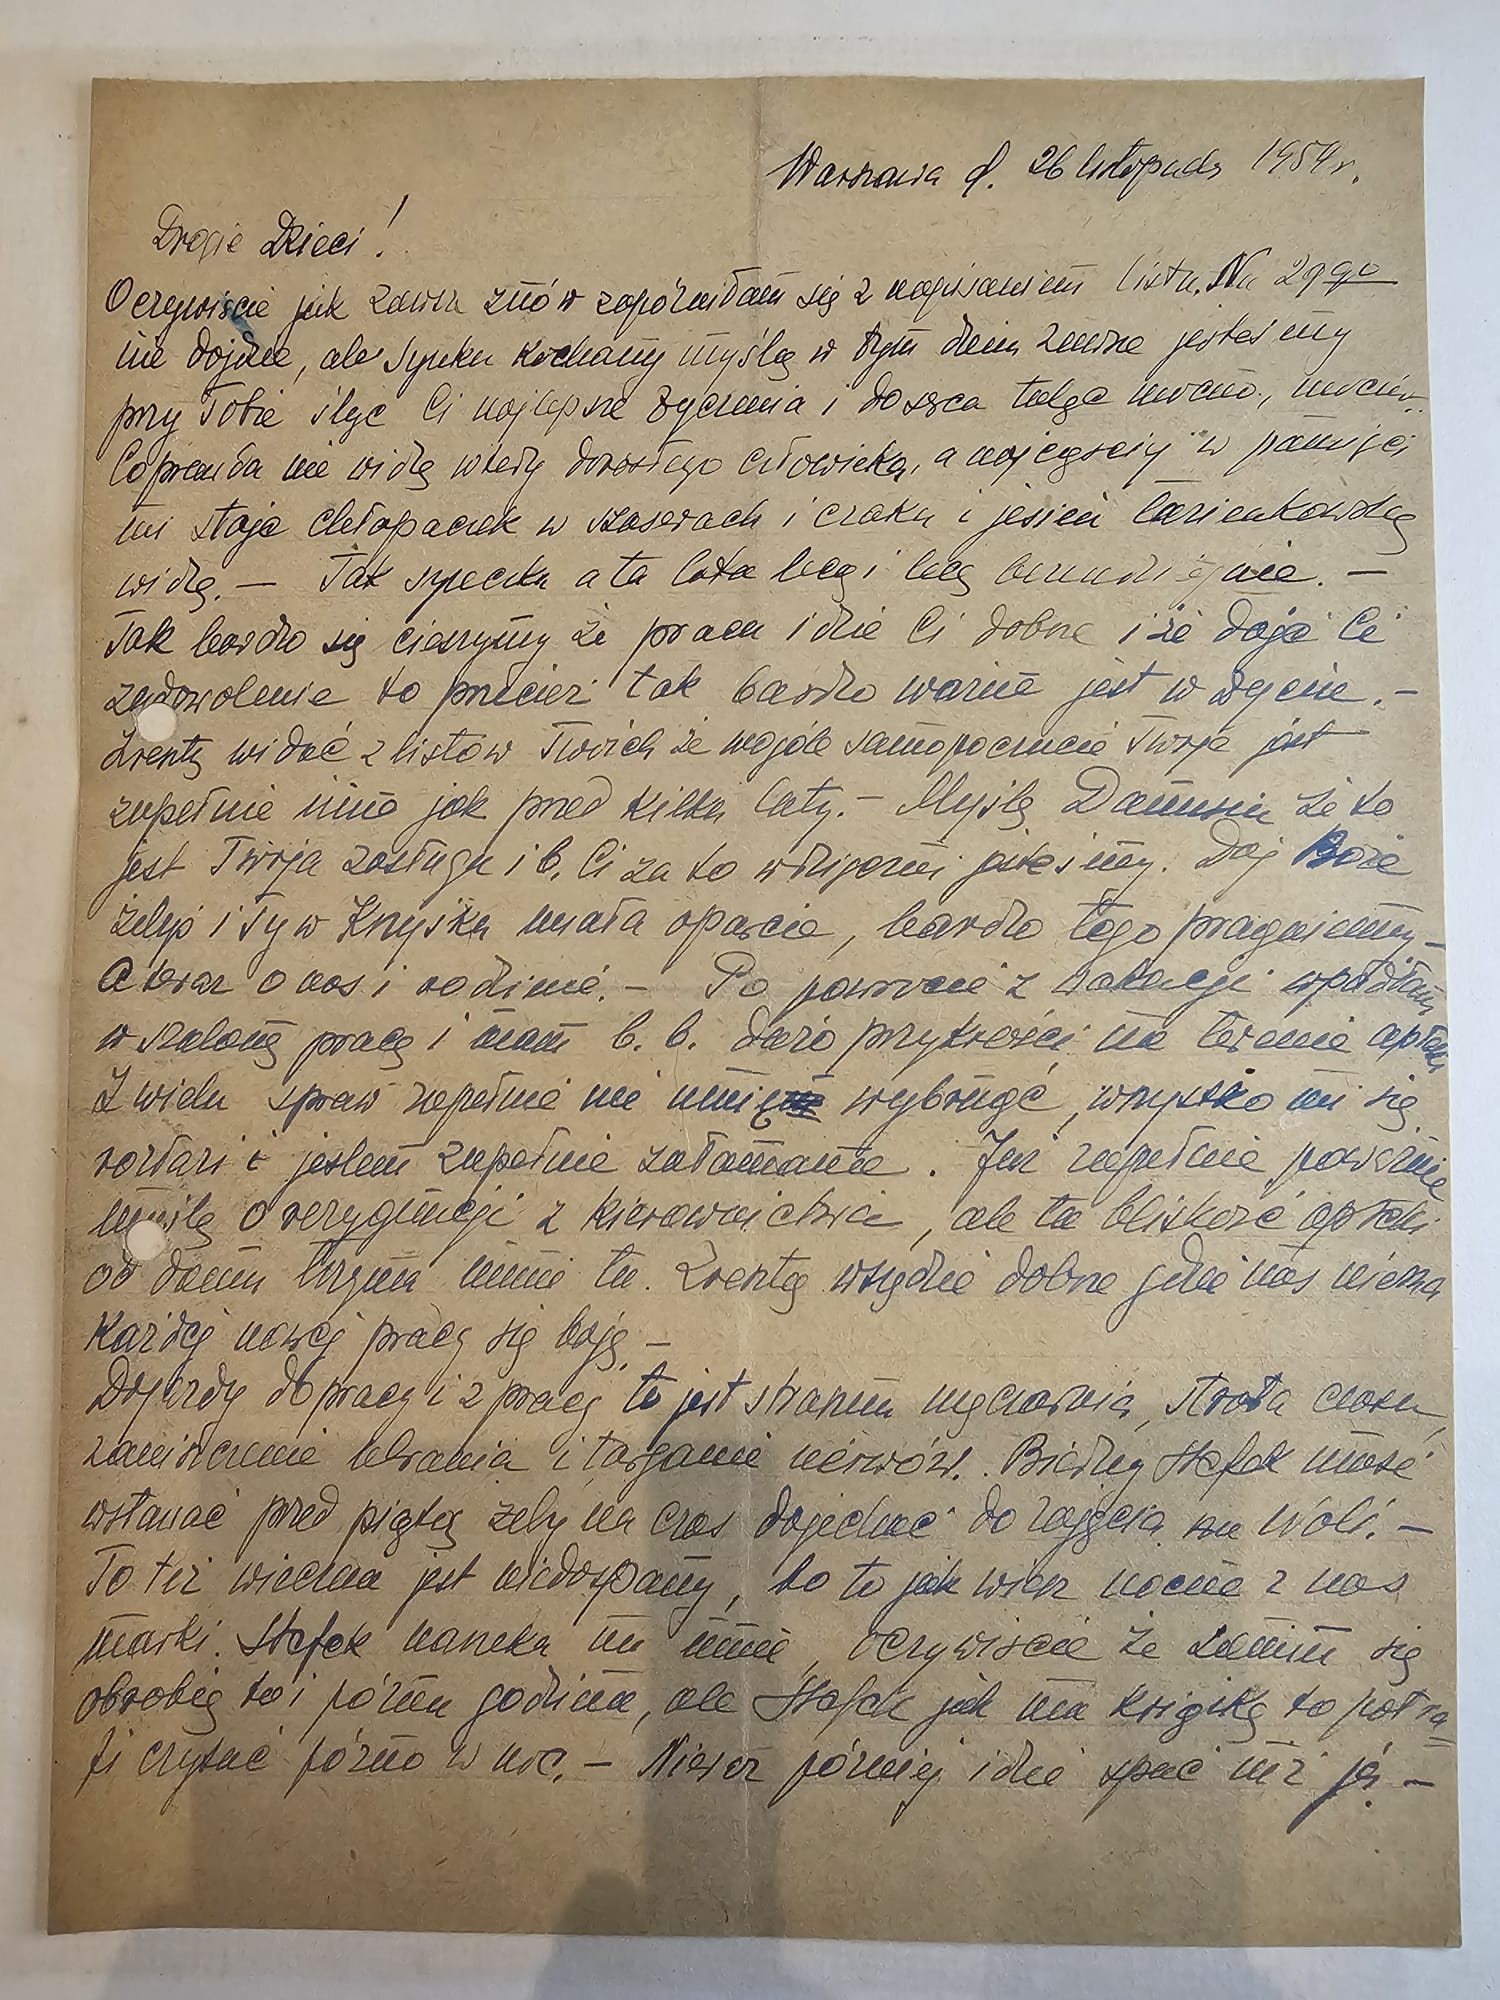 Warszawa d. 26 listopada 1954 r.
Drogie Dzieci!
Oczywiście jak zawsze znów zapóźniłam się z napisaniem listu. Na 29go
nie dojdzie, ale Synku kochany myślą w tym dniu zawsze jesteśmy
przy Tobie i ślę Ci najlepsze życzenia i do serca tulę mocno, mocno.
Coprawda nie widzę wtedy dorosłego człowieka, a najczęściej w pamięci
mi staje chłopaczek w szoserach i czaku i jesień łazienkowską
widzę. — Tak syneczku a ta lata biegą i biegą
Tak bardzo się cieszymy że praca idzie Ci dobrze i że daje Ci
zadowolenie to przecież tak bardzo ważne jest w życiu. —
Zresztą widać z listów Twoich że wogóle samopoczucie Twoje jest
zupełnie inne jak przed kilku laty. — Myślę Danusiu że to
jest Twoja zasługa i b. Ci za to wdzięczni jesteśmy. Daj Boże
żebyś i Ty w Krzyśku miała oparcie, bardzo tego pragniemy —
A teraz o nas i rodzinie. — Po powrocie z wakacji wpadłam
w szaloną pracę i mam b. b. dużo przykrości na terenie apteki
Z wielu spraw zupełnie nie umię wybrnąć, wszystko mi się
rozłazi i jestem zupełnie załamana. Już zupełnie poważnie
myślę o rezygnacji z kierownictwa, ale ta bliskość apteki
od domu trzyma mnie tu. Zresztą wszędzie dobrze gdzie nas niema
Każdej nowej pracy się boję. —
Dojazdy do pracy i z pracy to jest straszna męczarnia, strata czasu,
zaniszczenie ubrania i targanie nerwów. Biedny Stefek musi
wstawać przed piątą żeby na czas dojechać do zajęcia na Woli. —
To też wiecznie jest niedospany, bo to jak wiesz nocne z nas
marki. Stefek narzeka na mnie, oczywiście że zanim się
obrobię to i późna godzina, ale Stefek jak ma książkę to potra
fi czytać późno w noc. — Nieraz później idzie spać niż ja. —